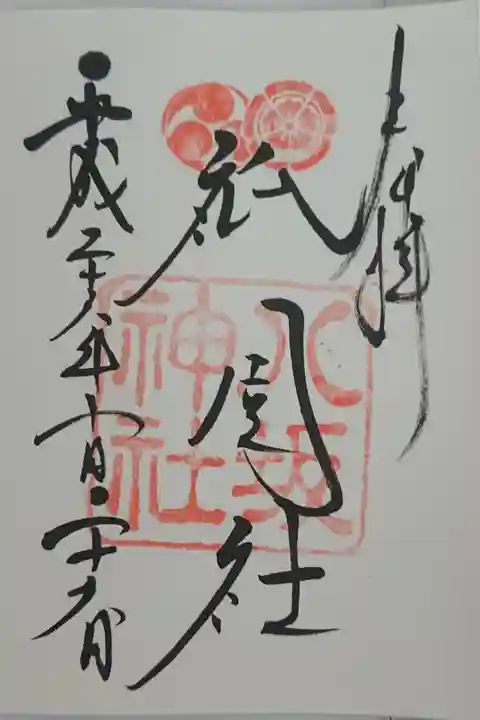 奉拝
祇園社
八坂
神社
平成二十八年十月二十六日